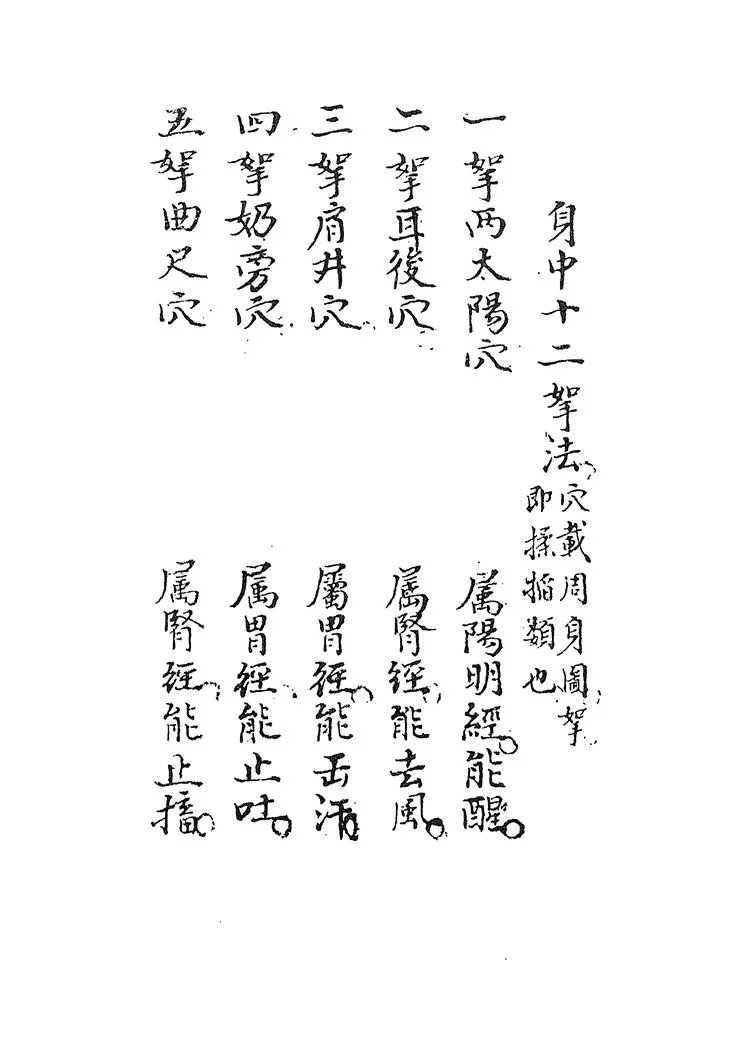 身中十二拏法穴載周身圖拏即揉掐類也
一拏两太陽穴 属陽明經能醒
二拏耳後穴 属腎經能去風
三拏肩井穴 屬胃經能出汗
四拏奶旁穴 属胃經能止吐
五拏曲尺穴 属腎經能止搐